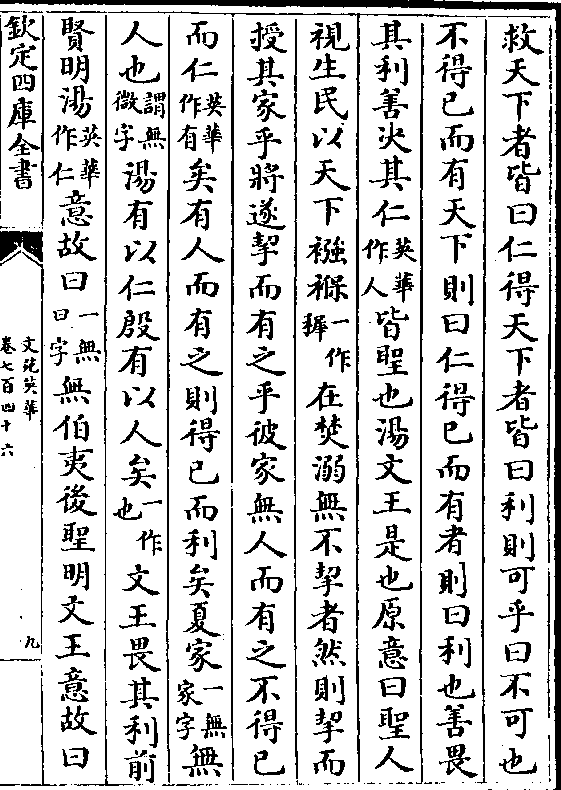 救天下者皆曰仁得天下者皆曰利則可乎曰不可也
不得已而有天下則曰仁得已而有者則曰利也善畏
其利善決其仁英華作人皆聖也湯文王是也原意曰聖人
視生民以天下襁褓一作墀在焚溺無不挈者然則挈而
授其家乎將遂挈而有之乎彼家無人而有之不得已
而仁英華作有矣有人而有之則得已而利矣夏家一無家字無
人也謂無微字湯有以仁殷有以人矣一作也文王畏其利前
賢明湯英華作仁意故曰一無曰字無伯夷後聖明文王意故曰
欽定四庫全書
文苑英華
卷七百四十六
九